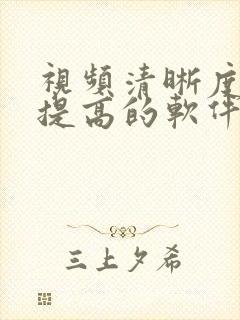 視頻清晰度
提高的軟件
三上夕希